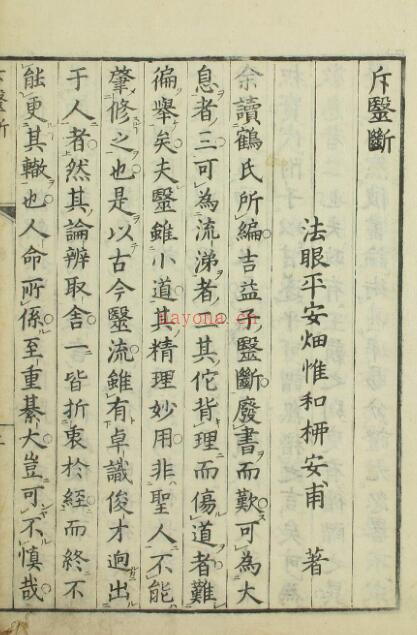 斥毉斷
法眼平安畑惟和柳安甫 著
余讀鶴氏所編吉益子毉斷廢書而歎可為大
息者三可為流涕者二其佗背理而傷道者難
徧舉矣夫毉雖小道其精理妙用非聖人不能
肇修之也是以古今毉流雖有卓識俊才逈出
于人者然其論辨取舍一皆折衷於經而終不
能更其轍也人命所係至重綦大豈可不慎哉